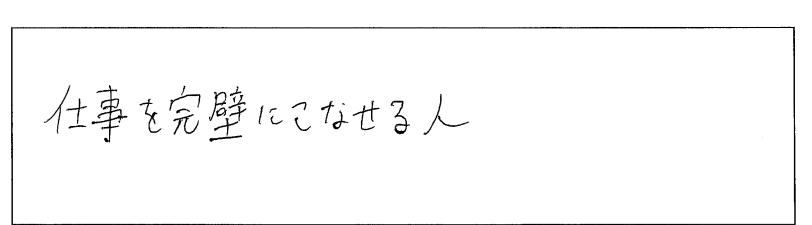 仕事を完壁にこなせる人